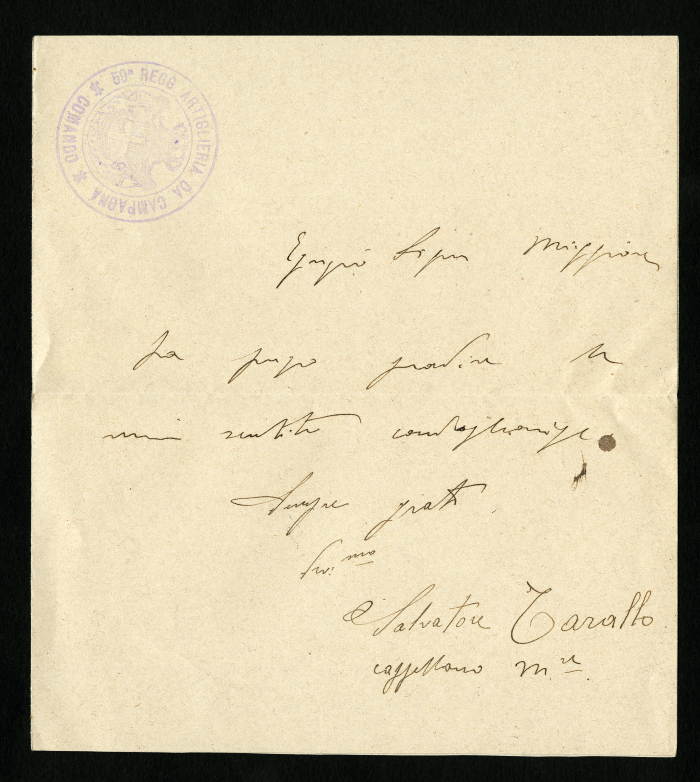 COMANDO * 59° REGG ARTIGLIERIA DA CAMPAGNA *
Egregio Signor Maggiore
La prego gradire le
mie sentite condoglianze.
Sempre grato
Dev.mo
Salvatore Tarallo
cappellano m.re